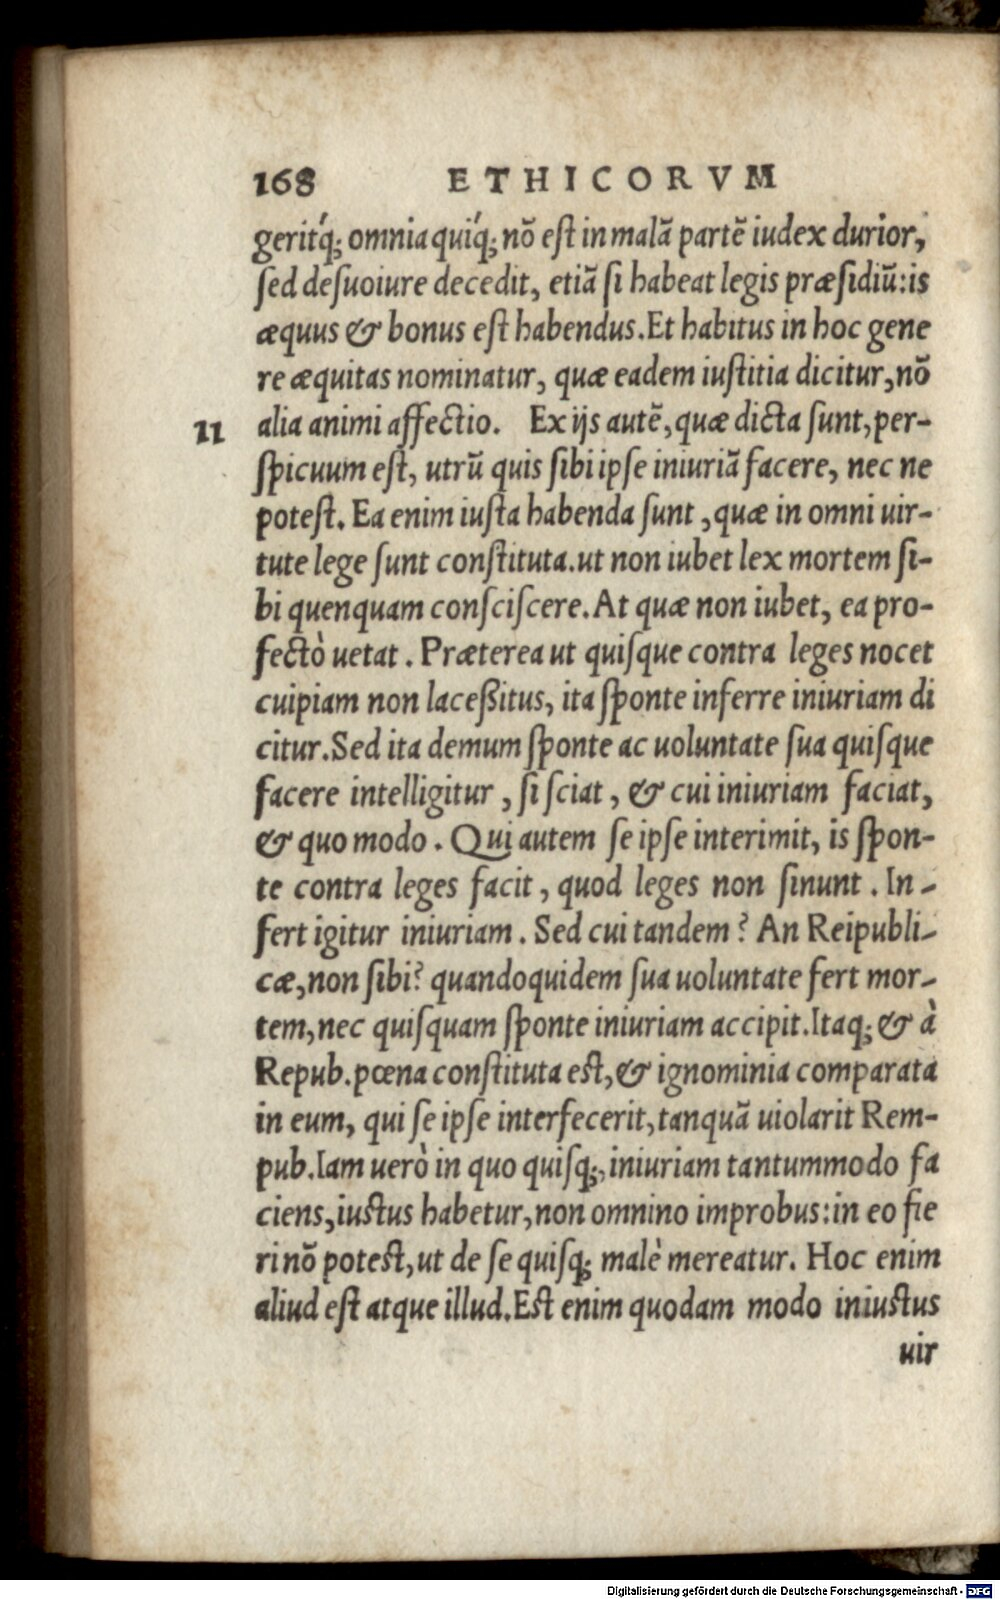 168 ETHICORVM
geritq́; omnia quiq́; nõ eſt in malã partẽ iudex durior,
ſed de ſuo iure decedit, etiã ſi habeat legis præſidiũ: is
æquus & bonus eſt habendus. Et habitus in hoc gene
re æquitas nominatur, quæ eadem iuſtitia dicitur, nõ
11 alia animi affectio. Ex ijs autẽ, quæ dicta ſunt, per-
ſpicuum eſt, utrũ quis ſibi ipſe iniuriã facere, nec ne
poteſt. Ea enim iuſta habenda ſunt, quæ in omni uir-
tute lege ſunt conſtituta. ut non iubet lex mortem ſi-
bi quenquam conſciſcere. At quæ non iubet, ea pro-
fectò uetat. Præterea ut quiſque contra leges nocet
cuipiam non laceßitus, ita ſponte inferre iniuriam di
citur. Sed ita demum ſponte ac uoluntate ſua quiſque
facere intelligitur, ſi ſciat, & cui iniuriam faciat,
& quo modo. Qui autem ſe ipſe interimit, is ſpon-
te contra leges facit, quod leges non ſinunt. In-
fert igitur iniuriam. Sed cui tandem? An Reipubli-
cæ, non ſibi? quandoquidem ſua uoluntate fert mor-
tem, nec quiſquam ſponte iniuriam accipit. Itaq; & à
Repub. pœna conſtituta eſt, & ignominia comparata
in eum, qui ſe ipſe interfecerit, tanquã uiolarit Rem-
pub. Iam uerò in quo quiſq;, iniuriam tantummodo fa
ciens, iuſtus habetur, non omnino improbus: in eo fie
ri nõ poteſt, ut de ſe quiſq; malè mereatur. Hoc enim
aliud eſt atque illud. Eſt enim quodam modo iniuſtus
uir
Digitalisierung gefördert durch die Deutsche Forschungsgemeinschaft - DFG